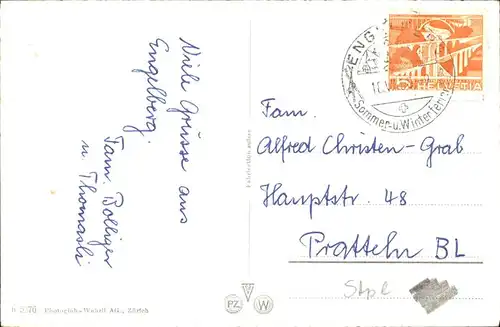 Viele Grüsse aus
Engelberg.
Fam. Bolliger
u Thomasli
Photoglob-Wehrli AG., Zürich
PZ
W
ENG
HELVETIA
Sommer-u.Winter
Fam.
Alfred Christen-Grab
Hauptstr. 48
Pratteln BL
Stpl